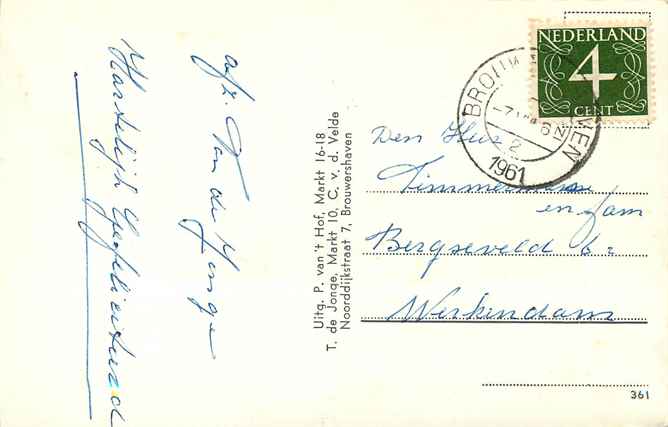 Hartelijk Gefeliciteerd
afz. Van de Jonge
Uitg. P. van 't Hof, Markt 16-18
T. de Jonge, Markt 10, C. v. d. Velde
Noorddijkstraat 7, Brouwershaven
NEDERLAND
4
CENT
BROUW
2
1961
Den Heer
Timmermans
en fam
Bergseveld
Werkendam
361